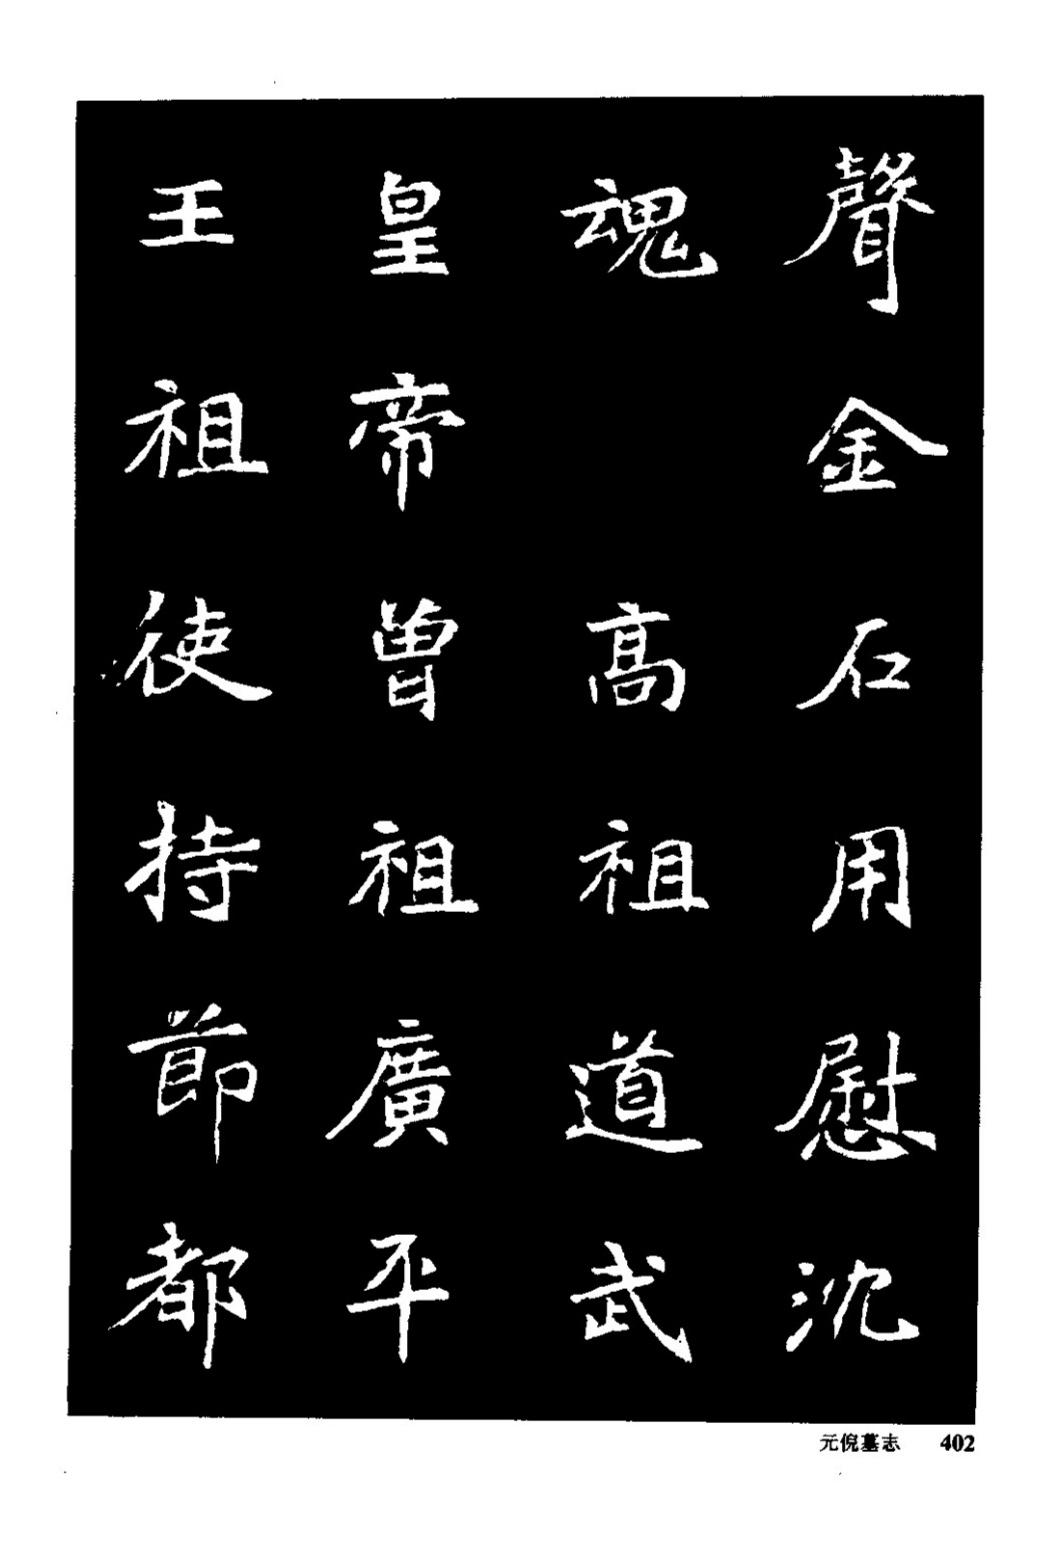 聲金石用慰沈
魂 高祖道武
皇帝曾祖廣平
王祖使持節都
元倪墓志 402